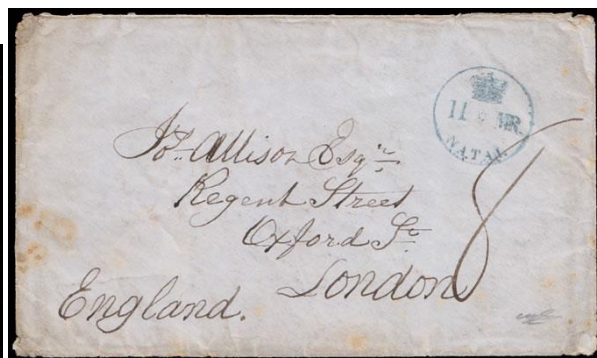 11 MR.
NATAL
Jos. Allison Esqre
Regent Street
Oxford St.
London
England.
8